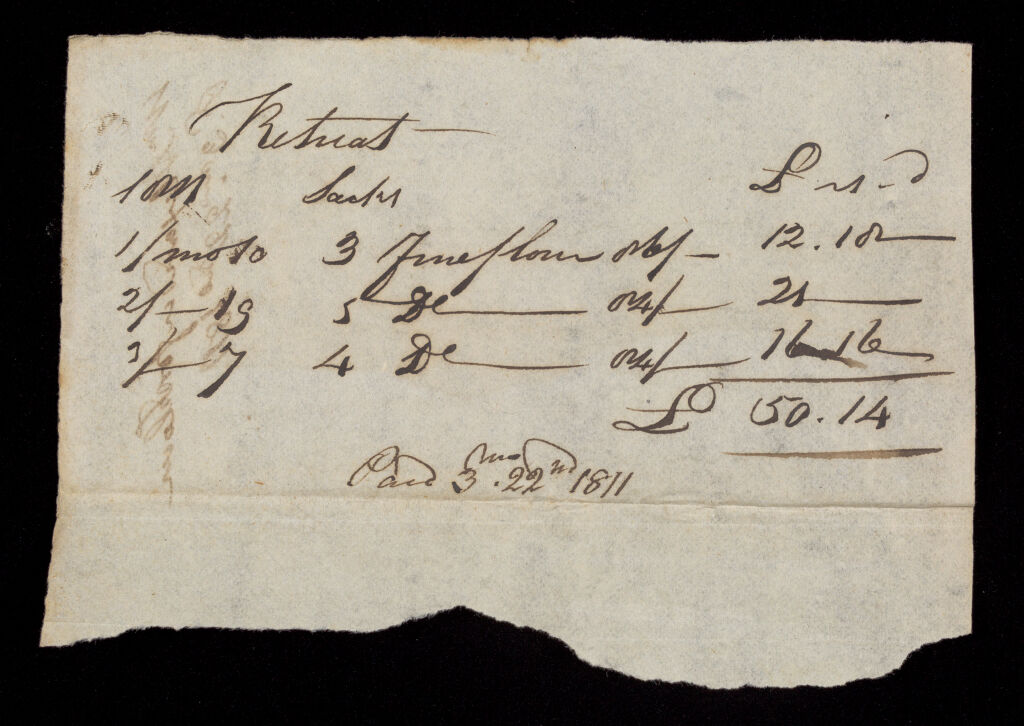 Retreat
1811 Sacks £ s d
1/mo 10 3 Fine flour 86/- 12.18
2/- 19 5 Do 84/ 21
3/- 7 4 Do 84/ 16.16
£ 50.14
Paid 3mo. 22nd 1811